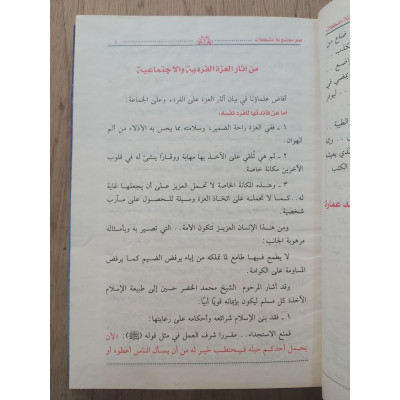 من آثار العزة الفردية والاجتماعية
أفاض علماؤنا في بيان آثار العزة على الفرد، وعلى الجماعة:
أما عن فائدتها للفرد نفسه:
١ ـ ففي العزة راحة الضمير، وسلامته مما يحس به الأذلاء من ألم
الهوان.
٢ ـ ثم هي تُلقي على الأخذ بها مهابة ووقارًا ينشئ له في قلوب
الآخرين مكانة خاصة.
٣ ـ وهذه المكانة الخاصة لا تحمل العزيز على أن يجعلها غاية
له، كما لا تحمله على اتخاذ العزة وسيلة للحصول على مآرب
شخصية.
ومن هذا الإنسان العزيز تتكون الأمة.. التي تصير به وبأمثاله
مرهوبة الجانب:
لا يطمع فيها طامع لما تملكه من إباء يرفض الضيم كما يرفض
المساومة على الكرامة.
وقد أشار المرحوم الشيخ محمد الخضر حسين إلى طبيعة الإسلام
الآخذة كل مسلم ليكون بإيمانه قويًا أبيًا:
١ ـ فقد بنى الإسلام شرائعه وأحكامه على رعايتها:
فمنع الاستجداء.. مقررا شرف العمل في مثل قوله (ﷺ): «لأن
يحمل أحدكم حبله فيحتطب خير له من أن يسأل الناس أعطوه أو
فماع من
الكذب
الطيبة
الكتب